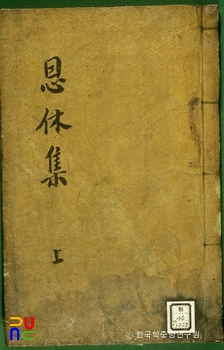 恩
休
集
上
© 한국학중앙연구원